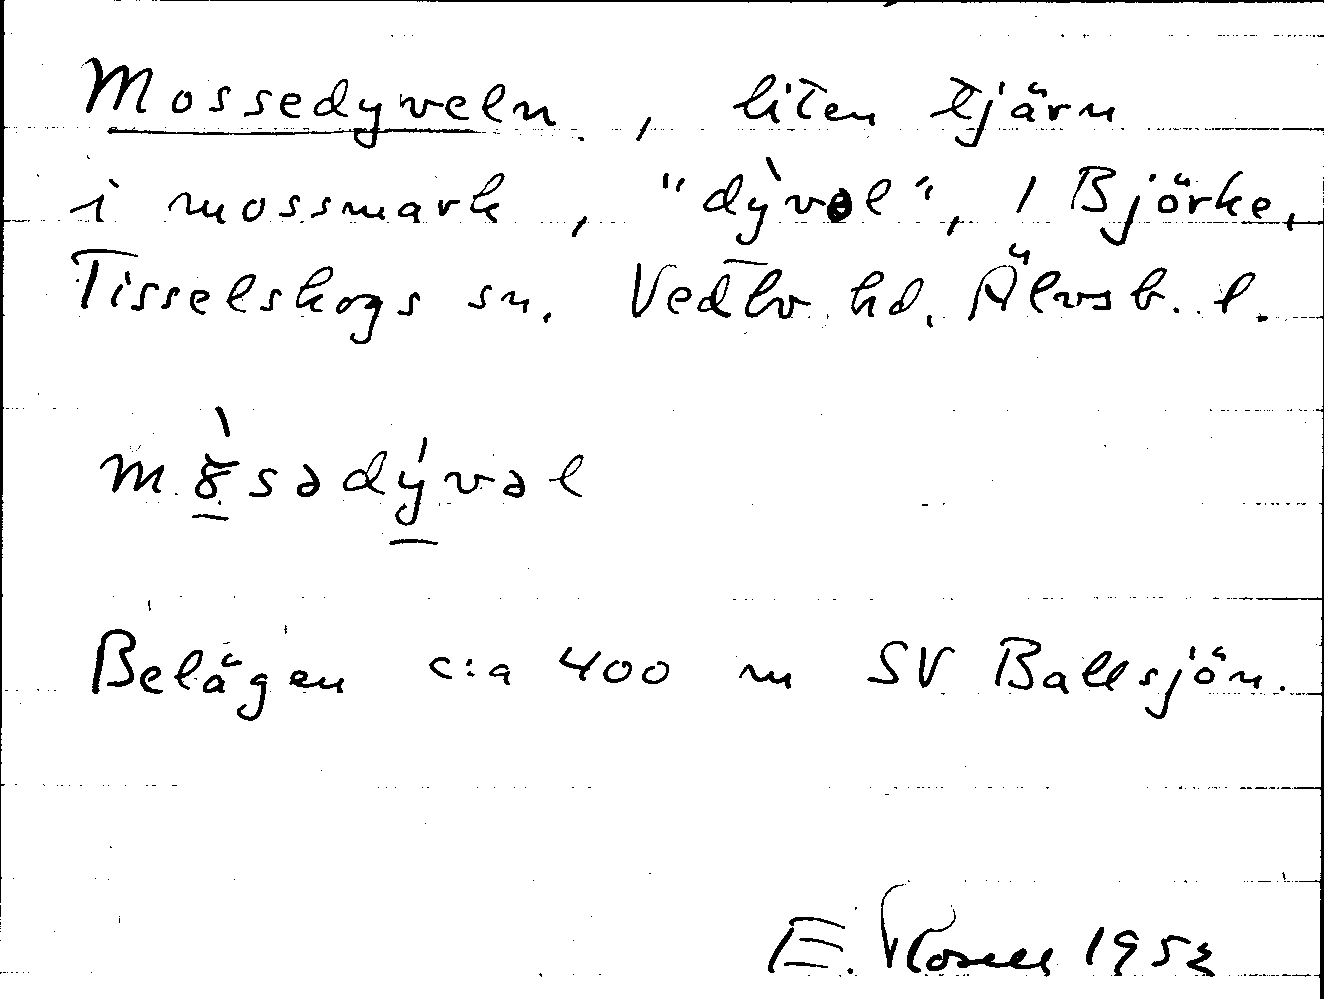 Mossedyveln, liten tjärn
i mossmark, "dỳvəl", 1 Björke,
Tisselskogs sn. Vedbo hd. Älvsb. l.
mɤ̱̀sədý̱vəl
Belägen c:a 400 m SV Ballsjön.
E. 1952